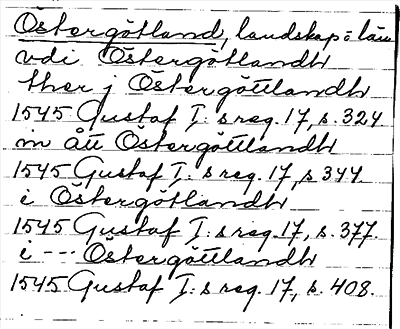 Östergötland, landskap = län
vdi Östergötlandh
ther j Östergöttlandh
1545 Gustaf I:s reg. 17, s. 324
in ått Östergöttlandh
1545 Gustaf I:s reg. 17, s. 344
i Östergötlandh
1545 Gustaf I:s reg. 17, s. 377.
i --- Östergöttlandh
1545 Gustaf I:s reg. 17, s. 408.